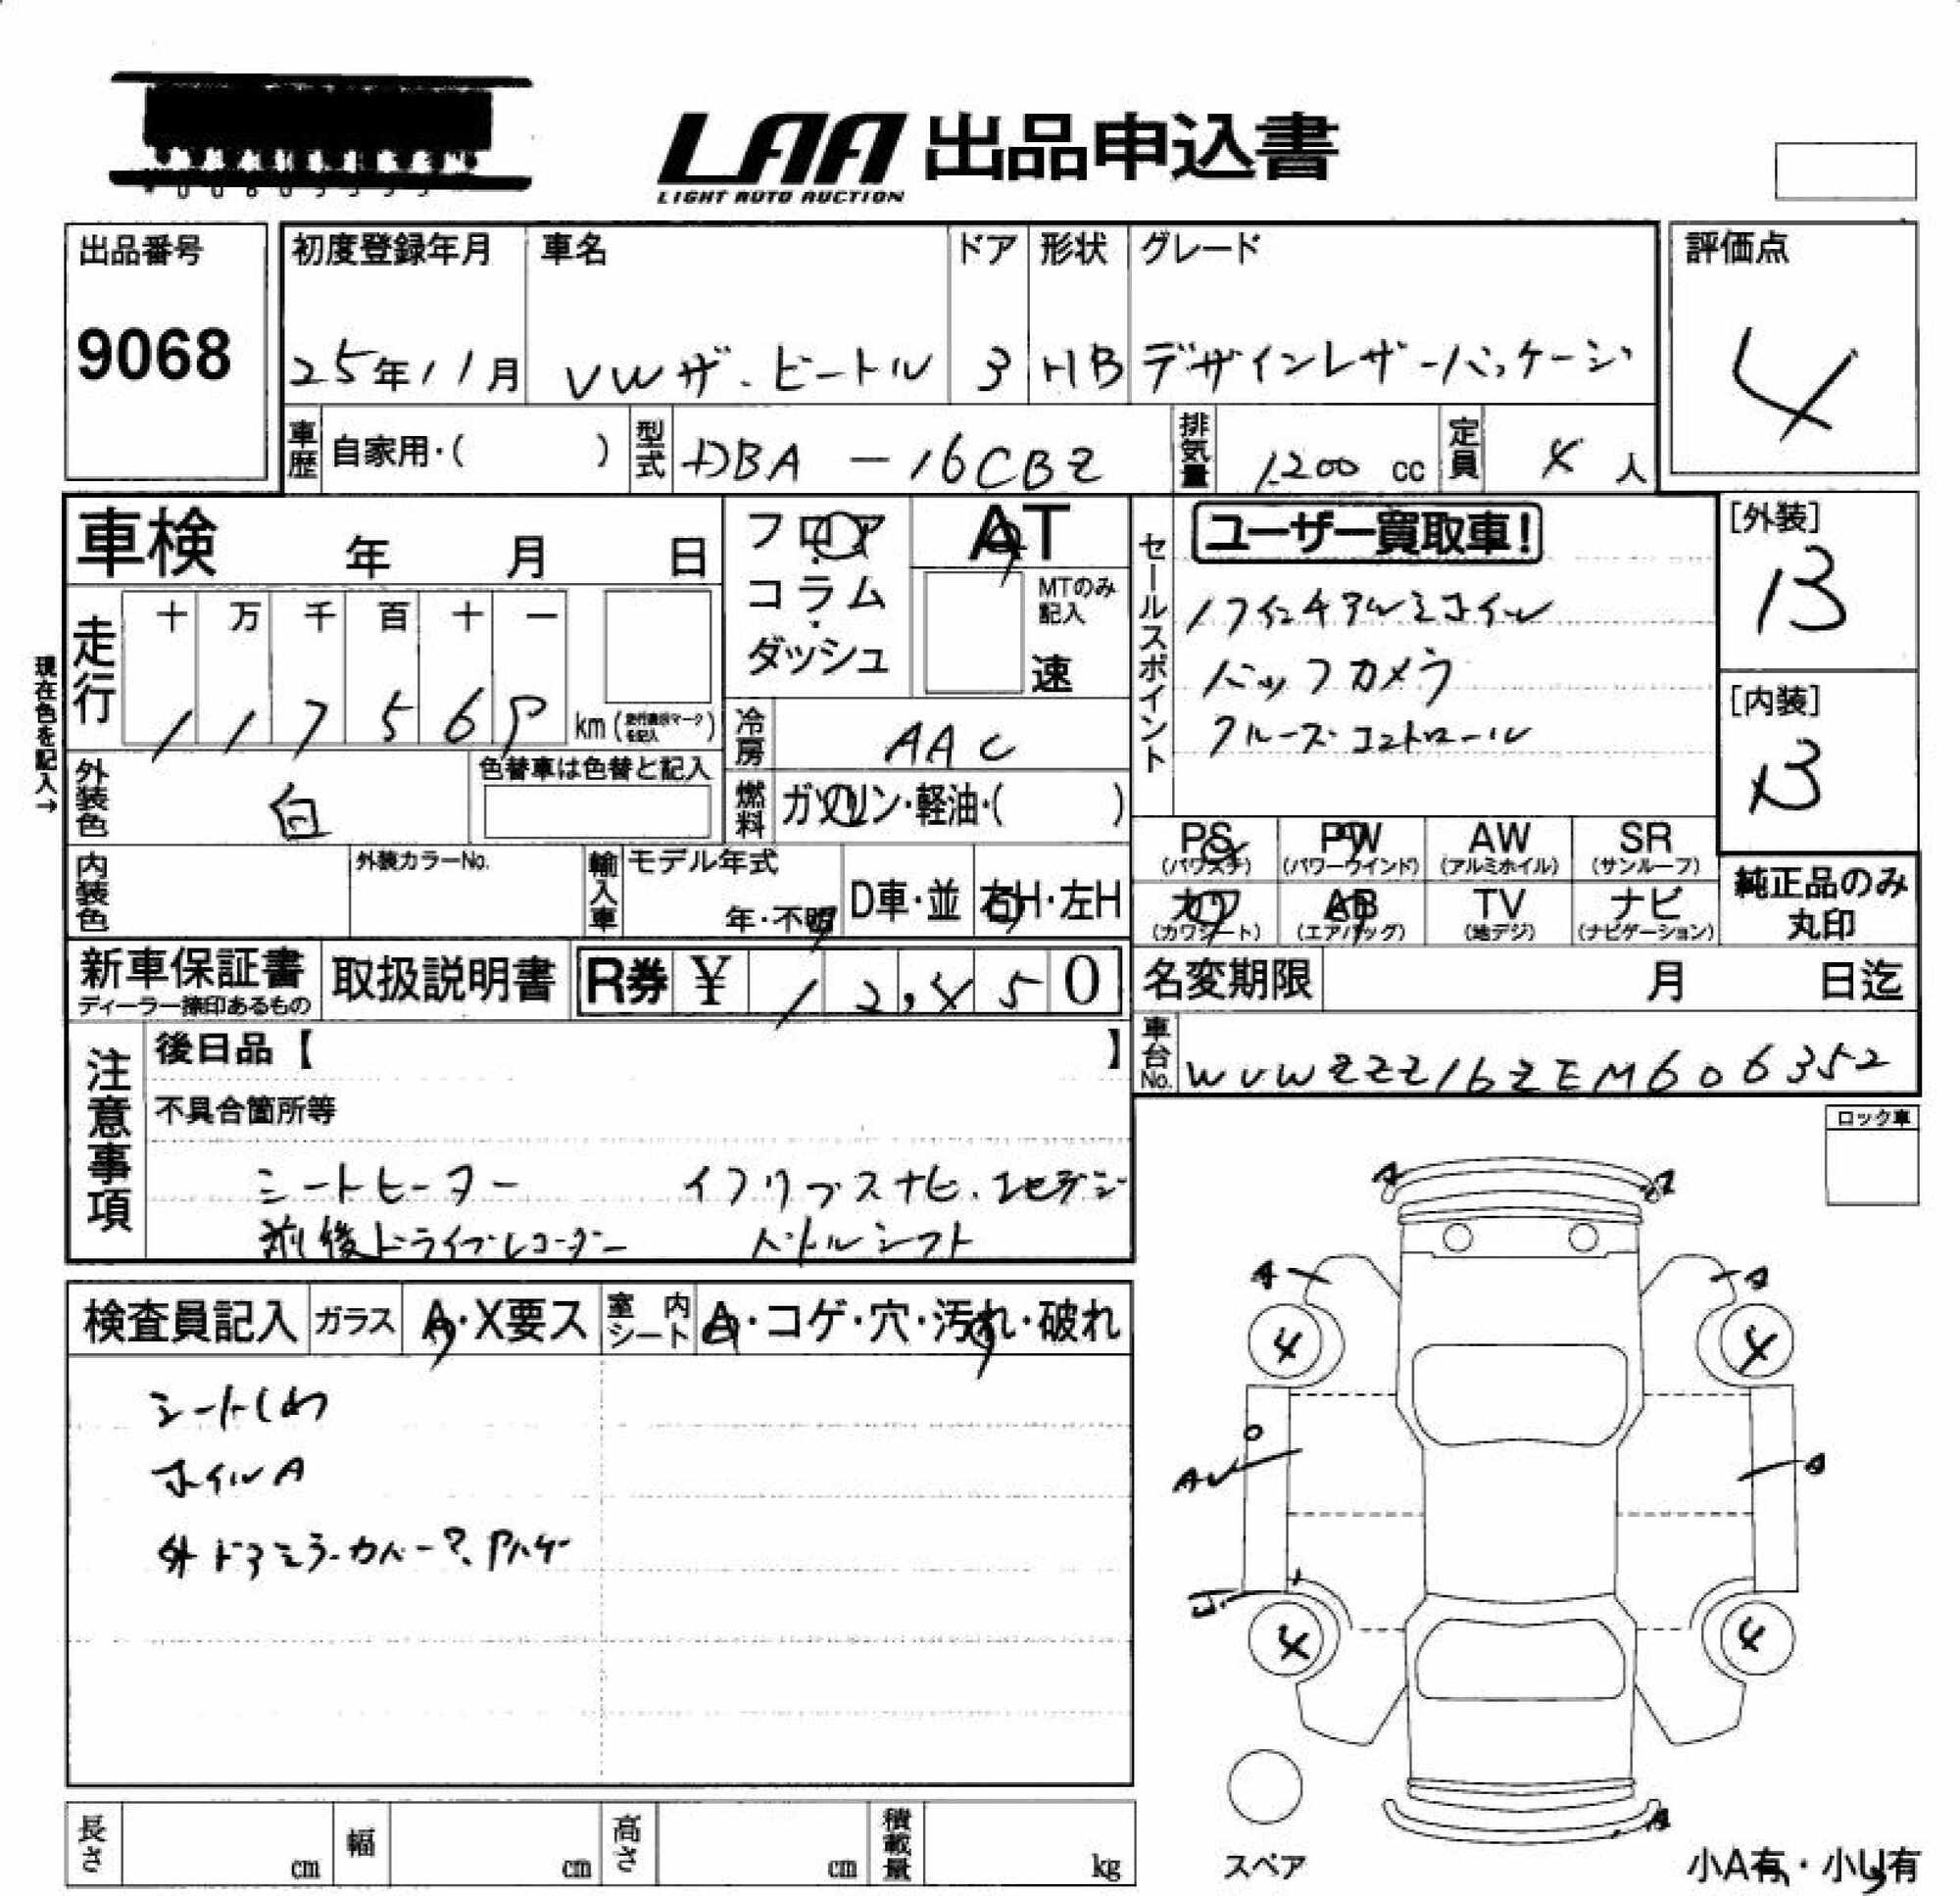 LAA 出品申込書
LIGHT AUTO AUCTION
出品番号
9068
初度登録年月
25年11月
車名
VWザ・ビートル
ドア
3
形状
HB
グレード
デザインレザーパッケージ
評価点
4
車歴 自家用・( )
型式 DBA-16CBZ
排気量 1200 cc
定員 4 人
車検 年 月 日
フロア・コラム・ダッシュ
AT
MTのみ記入
速
セールスポイント
ユーザー買取車!
17インチアルミホイル
バックカメラ
クルーズコントロール
[外装]
B
[内装]
B
現在色を記入→
走行
十 万 千 百 十 一
1 1 7 5 6
km
冷房 AAC
外装色 白
色替車は色替と記入
燃料 ガソリン・軽油・( )
PS (パワステ)
PW (パワーウインド)
AW (アルミホイル)
SR (サンルーフ)
カワ (カワシート)
AB (エアバッグ)
TV (地デジ)
ナビ (ナビゲーション)
純正品のみ
丸印
内装色
外装カラーNo.
輸入車
モデル年式
年・不明
D車・並
右H・左H
新車保証書
ディーラー捺印あるもの
取扱説明書
R券 ¥ 12,450
名変期限 月 日迄
車台No. WVWZZZ16ZEM606352
注意事項
後日品【 】
不具合箇所等
シートヒーター イクリプスナビ.
前後ドライブレコーダー パドルシフト
ロック車
検査員記入
ガラス A・X要ス
室内シート A・コゲ・穴・汚れ・破れ
シートしわ
ホイルA
外ドアミラーカバー?.Pハゲ
A A
A A
4 4
A
4 4
A
スペア
小A有・小U有
長さ cm
幅 cm
高さ cm
積載量 kg